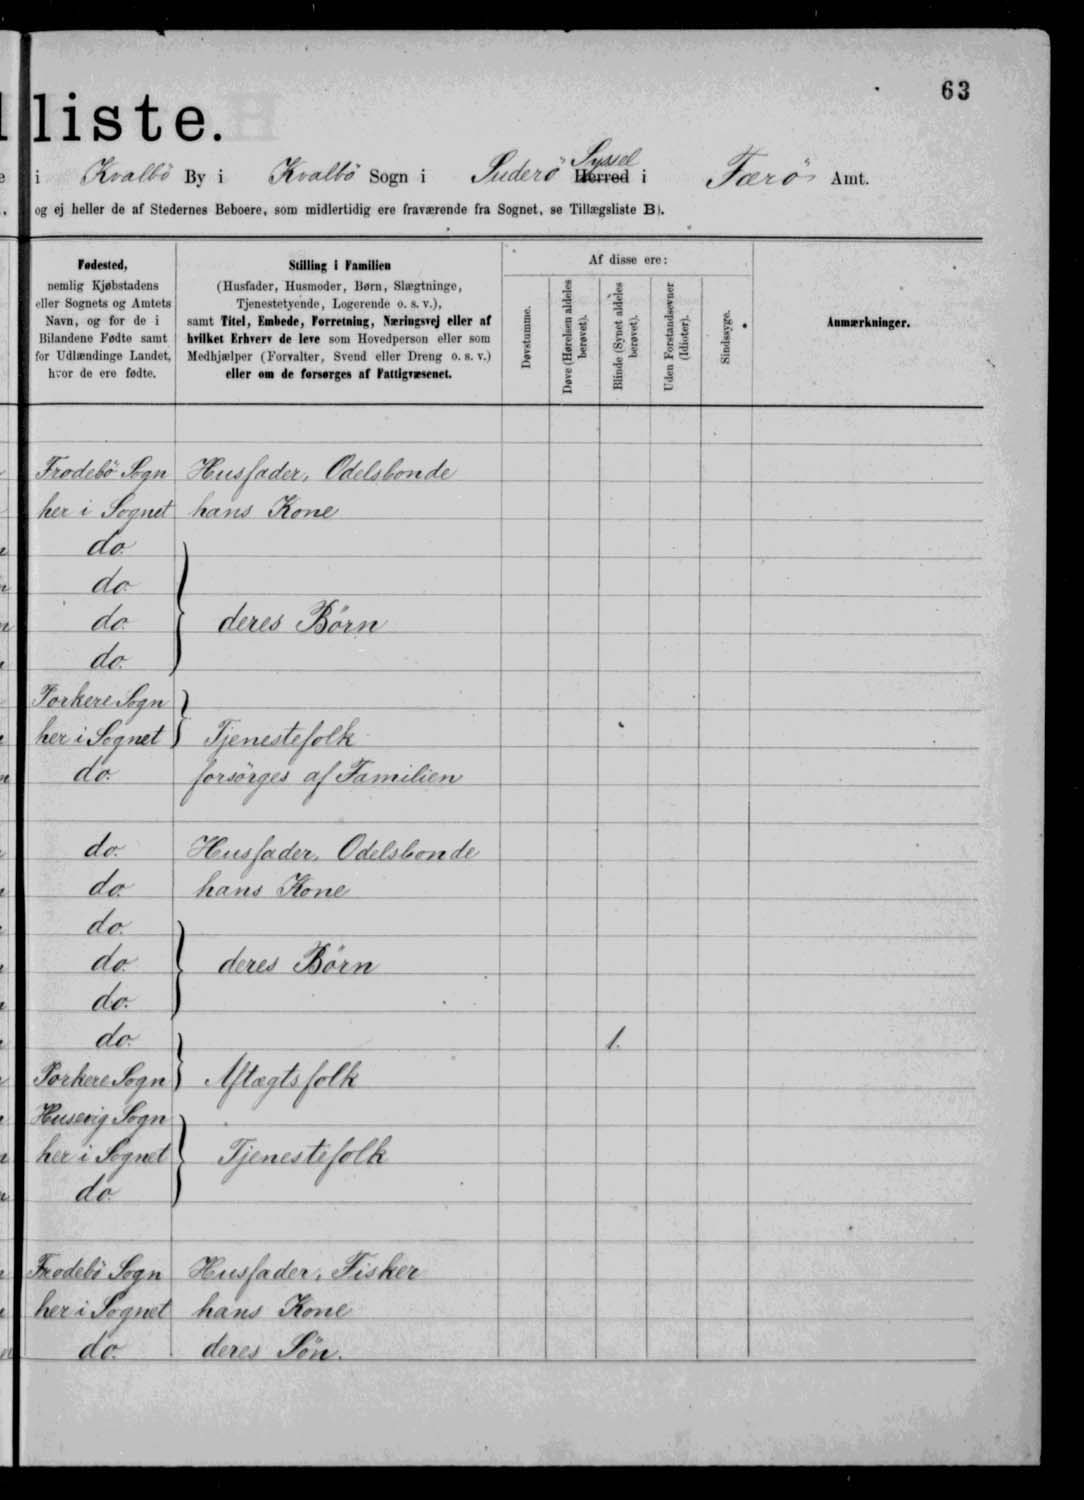 63
liste.
i Kvalbö By i Kvalbö Sogn i Suderö Syssel Herred i Færö Amt.
og ej heller de af Stedernes Beboere, som midlertidig ere fraværende fra Sognet, se Tillægsliste B).
Fødested,
nemlig Kjøbstadens
eller Sognets og Amtets
Navn, og for de i
Bilandene Fødte samt
for Udlændinge Landet,
hvor de ere fødte.
Stilling i Familien
(Husfader, Husmoder, Børn, Slægtninge,
Tjenestetyende, Logerende o. s. v.),
samt Titel, Embede, Forretning, Næringsvej eller af
hvilket Erhverv de leve som Hovedperson eller som
Medhjælper (Forvalter, Svend eller Dreng o. s. v.)
eller om de forsørges af Fattigvæsenet.
Af disse ere:
Døvstumme.
Døve (Hørelsen aldeles
berøvet).
Blinde (Synet aldeles
berøvet).
Uden Forstandsevner
(Idioter).
Sindssyge.
Anmærkninger.
Frodebö Sogn Husfader, Odelsbonde
her i Sognet hans Kone
do.
do.
do. deres Börn
do.
Porkere Sogn
her i Sognet Tjenestefolk
do. forsörges af Familien
do. Husfader, Odelsbonde
do. hans Kone
do.
do. deres Börn
do.
do. 1.
Porkere Sogn Aftægtsfolk
Husevig Sogn
her i Sognet Tjenestefolk
do.
Frodebö Sogn Husfader, Fisker
her i Sognet hans Kone
do. deres Sön.